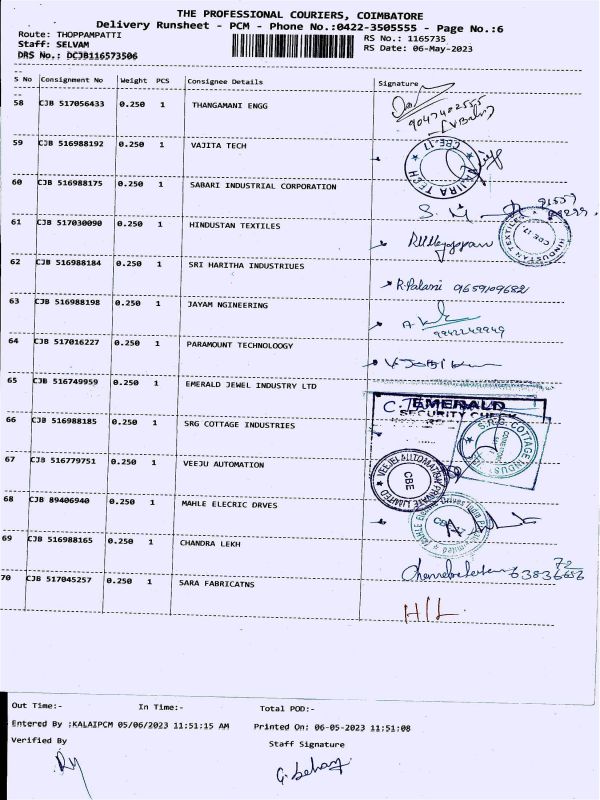 THE PROFESSIONAL COURIERS, COIMBATORE
Delivery Runsheet - PCM - Phone No.:0422-3505555 - Page No.:6
Route: THOPPAMPATTI
RS No.: 1165735
Staff: SELVAM
RS Date: 06-May-2023
DRS No.: DCJB116573506
S No Consignment No Weight PCS Consignee Details Signature
58 CJB 517056433 0.250 1 THANGAMANI ENGG
59 CJB 516988192 0.250 1 VAJITA TECH
CBE-17
60 CJB 516988175 0.250 1 SABARI INDUSTRIAL CORPORATION
61 CJB 517030090 0.250 1 HINDUSTAN TEXTILES
HINDUSTAN TEXTILES
CBE-17
62 CJB 516988184 0.250 1 SRI HARITHA INDUSTRIUES
R.Palani 9659109682
63 CJB 516988198 0.250 1 JAYAM NGINEERING
9942249949
64 CJB 517016227 0.250 1 PARAMOUNT TECHNOLOOGY
65 CJB 516749959 0.250 1 EMERALD JEWEL INDUSTRY LTD
EMERALD
SECURITY CHECK
66 CJB 516988185 0.250 1 SRG COTTAGE INDUSTRIES
67 CJB 516779751 0.250 1 VEEJU AUTOMATION
CBE
68 CJB 89406940 0.250 1 MAHLE ELECRIC DRVES
69 CJB 516988165 0.250 1 CHANDRA LEKH
70 CJB 517045257 0.250 1 SARA FABRICATNS
H/L
Out Time:- In Time:- Total POD:-
Entered By :KALAIPCM 05/06/2023 11:51:15 AM Printed On: 06-05-2023 11:51:08
Verified By Staff Signature